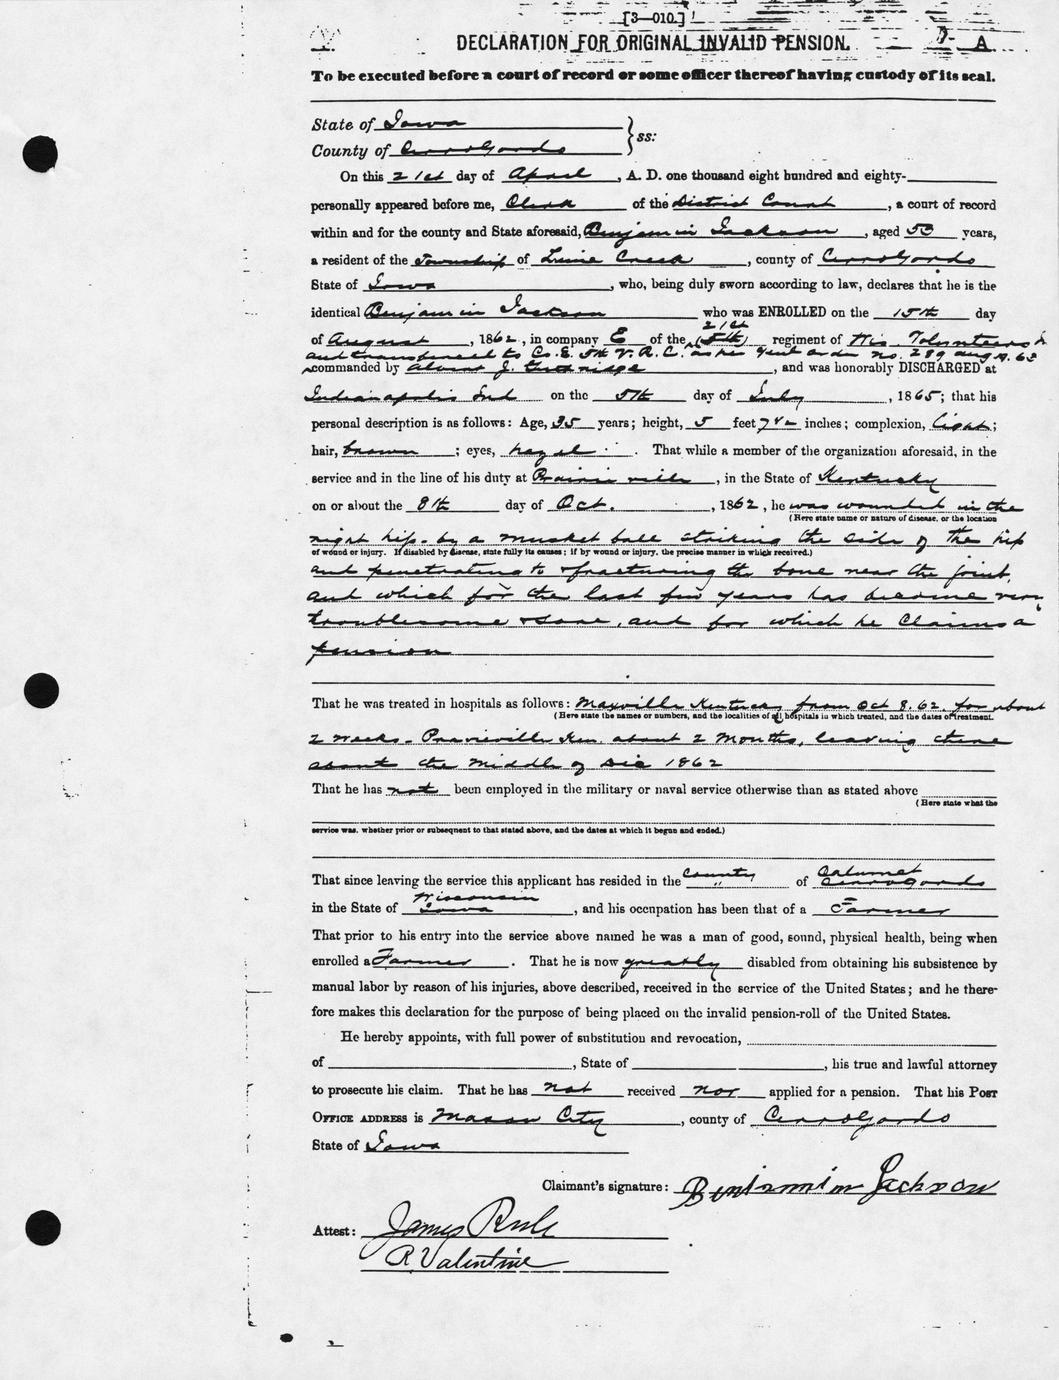 [3—010.]
DECLARATION FOR ORIGINAL INVALID PENSION. A
To be executed before a court of record or some officer thereof having custody of its seal.
State of Iowa
County of Cerro Gordo } ss:
On this 21st day of April, A. D. one thousand eight hundred and eighty-
personally appeared before me, Clerk of the District Court, a court of record
within and for the county and State aforesaid, Benjamin Jackson, aged 53 years,
a resident of the Township of Lime Creek, county of Cerro Gordo
State of Iowa, who, being duly sworn according to law, declares that he is the
identical Benjamin Jackson who was ENROLLED on the 15th day
21st
of August, 1862, in company E of the (5th) regiment of Wis. Volunteers
and transferred to Co. E. 5th V. R. C. as per Genl order no. 289 aug 63
commanded by J. , and was honorably DISCHARGED at
Indianapolis Ind on the 5th day of July, 1865; that his
personal description is as follows: Age, 35 years; height, 5 feet 7½ inches; complexion, light;
hair, brown; eyes, hazel. That while a member of the organization aforesaid, in the
service and in the line of his duty at Prairie ville, in the State of Kentucky
on or about the 8th day of Oct., 1862, he was wounded in the
(Here state name or nature of disease, or the location
right hip. by a musket ball striking the side of the hip
of wound or injury. If disabled by disease, state fully its causes; if by wound or injury, the precise manner in which received.)
and penetrating to & fracturing the bone near the joint,
and which for the last few years has become very
troublesome & sore, and for which he Claims a
pension
That he was treated in hospitals as follows: Maxville Kentucky from Oct 8. 62. for about
(Here state the names or numbers, and the localities of all hospitals in which treated, and the dates of treatment.
2 weeks - Prairieville Ken. about 2 Months, leaving there
about the middle of Dec 1862
That he has not been employed in the military or naval service otherwise than as stated above
(Here state what the
service was, whether prior or subsequent to that stated above, and the dates at which it began and ended.)
Calumet
That since leaving the service this applicant has resided in the County " of Cerro Gordo
Wisconsin
in the State of Iowa, and his occupation has been that of a Farmer
That prior to his entry into the service above named he was a man of good, sound, physical health, being when
enrolled a Farmer. That he is now greatly disabled from obtaining his subsistence by
manual labor by reason of his injuries, above described, received in the service of the United States; and he there-
fore makes this declaration for the purpose of being placed on the invalid pension-roll of the United States.
He hereby appoints, with full power of substitution and revocation,
of , State of , his true and lawful attorney
to prosecute his claim. That he has not received nor applied for a pension. That his Post
Office address is Mason City, county of Cerro Gordo
State of Iowa
Claimant's signature: Benjamin Jackson
Attest: James Rule
R Valentine